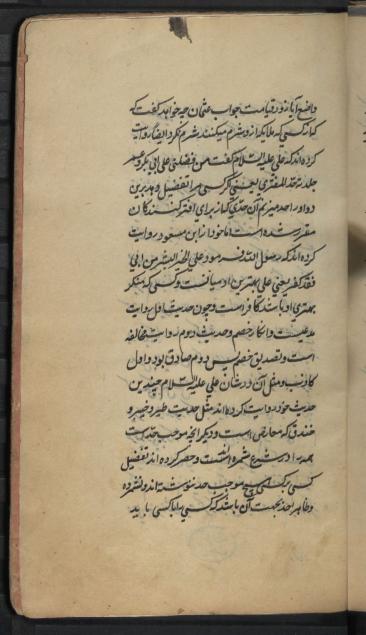 واضع آیا نزد قیامت جواب عثمان چه خواهد گفت که
کسی که ملایکه از و شرم میکنند شرم نکرد ایضا روایت
کرده اند که علی علیه السلام گفت من فضلنی علی ابی بکر و عمر
جلدته حد المفتری یعنی اگر کسی مرا تفضیل دهد برین
دو او را حد میزنم آن حدی که از برای افترا کنندگان
مقرر شده است اما خود از ابن مسعود روایت
کرده اند که رسول الله فرمود علی خیر البشر من ابی
فقد کفر یعنی علی بهترین آدمیانست و کسی که منکر
بهتری او باشد کافر است و چون حدیث اول روایت
مدعیست و انکار خصم و حدیث دوم روایت مخالفه
است و تصدیق خصم پس دوم صادق بود و اول
کاذب و مثل آن در شان علی علیه السلام چندین
حدیث خود روایت کرده اند مثل حدیث طیر و خیبر و
خندق که معارض است و دیگر آنچه موجب حد است
همه را در شرع شمرده است و حصر کرده اند تفضیل
کسی بر کسی موجب حد ننوشته اند و نشمرده
و ظاهرا حد بجهت آن باشد که کسی را با کسی باید